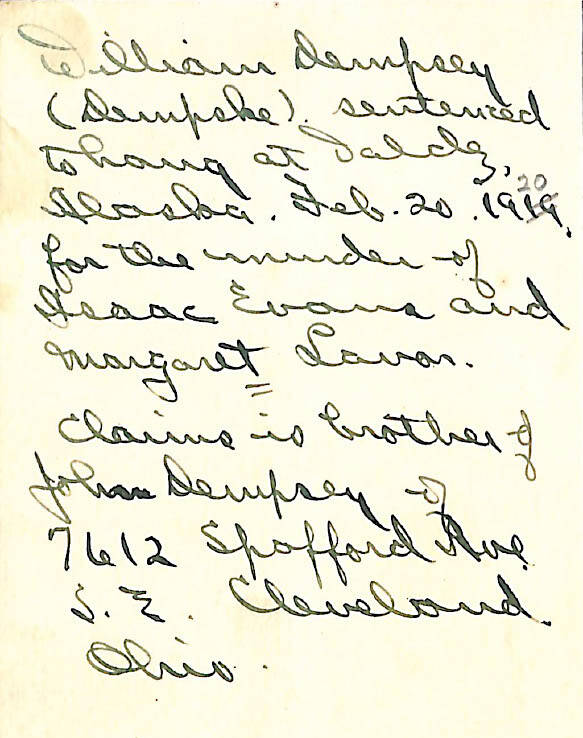 William Dempsey
(Dempske). sentenced
to hang at Valdez,
Alaska. Feb. 20. 1919.
20
for the murder of
Isaac Evans and
Margaret Lavor.
Claims is brother of
John Dempsey of
7612 Spafford Ave
S. E. Cleveland.
Ohio.